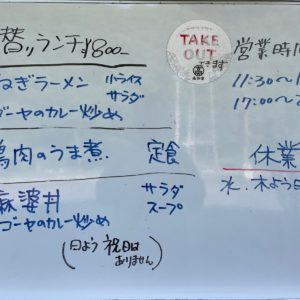 替りランチ ¥800-
ねぎラーメン 小ライス
サラダ
ゴーヤのカレー炒め
鶏肉のうま煮 定食
麻婆丼 サラダ
ゴーヤのカレー炒め スープ
(日よう祝日は
ありません)
TAKE
OUT
できます
営業時間
11:30〜1
17:00〜
休業
水、木よう日